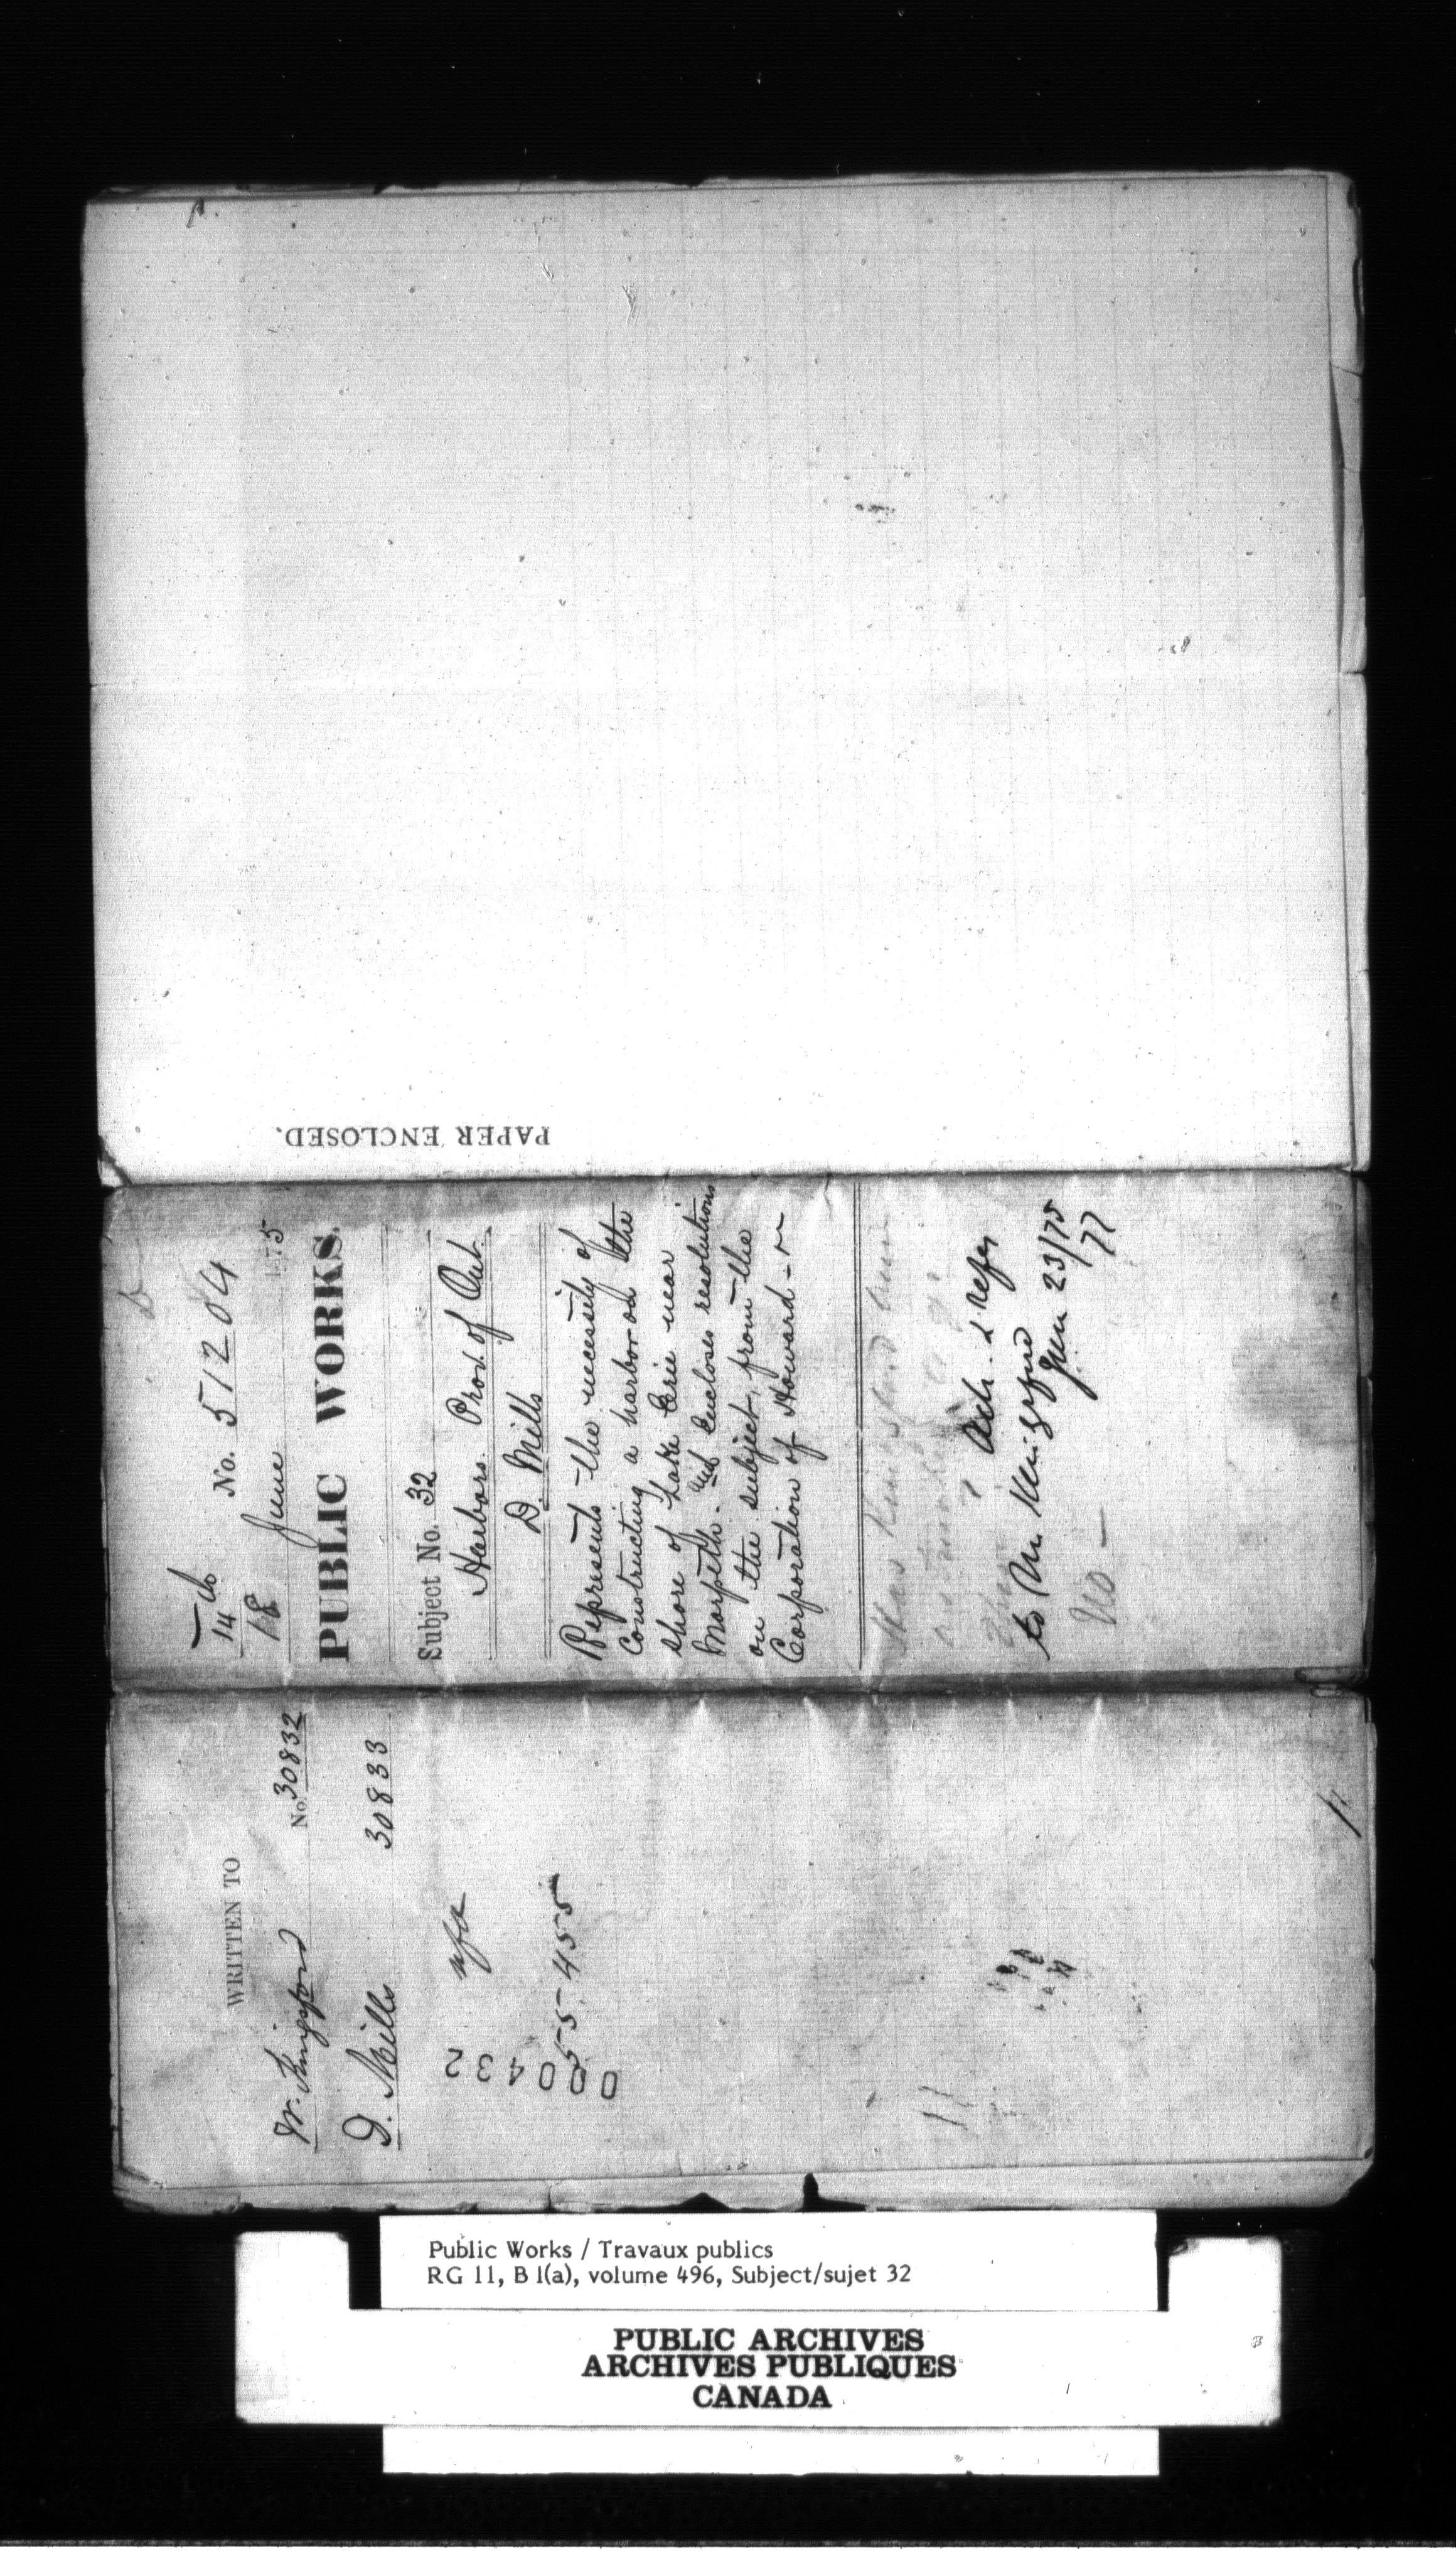 PAPER ENCLOSED.
14
18 June 1875
No. 51204
PUBLIC WORKS.
Subject No. 32
Harbors Prov. of Ont.
D. Mills
Represents the necessity of
Constructing a harbor on the
shore of Lake Erie near
Morpeth. and Encloses resolutions
on the subject, from the
Corporation of Howard
Has Kingsford
Ack. & refer
to Mr Kingsford
June 23/75
77
No
WRITTEN TO
W. Kingsford No. 30832
D. Mills 30833
nfa
55-455
000432
11
Public Works / Travaux publics
RG 11, B 1(a), volume 496, Subject/sujet 32
PUBLIC ARCHIVES
ARCHIVES PUBLIQUES
CANADA